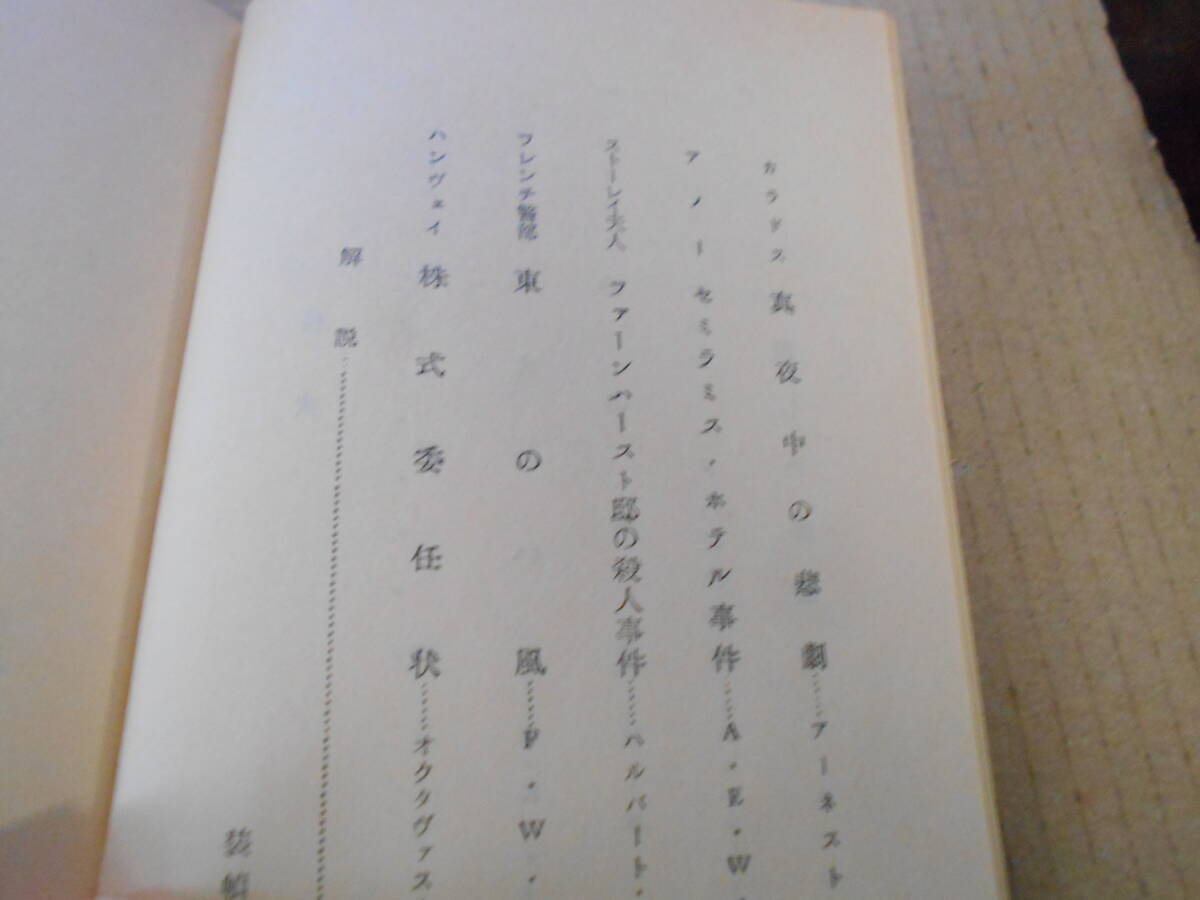 カラドス 真夜中の悲劇……アーネスト
アノー セミラミス・ホテル事件……A・E・W・
ストーレイ夫人 ファーンハースト邸の殺人事件……ハルバート・
フレンチ警部 東の風……F・W・
ハンヴェイ 株式委任状……オクタヴァス
解説……
装幀